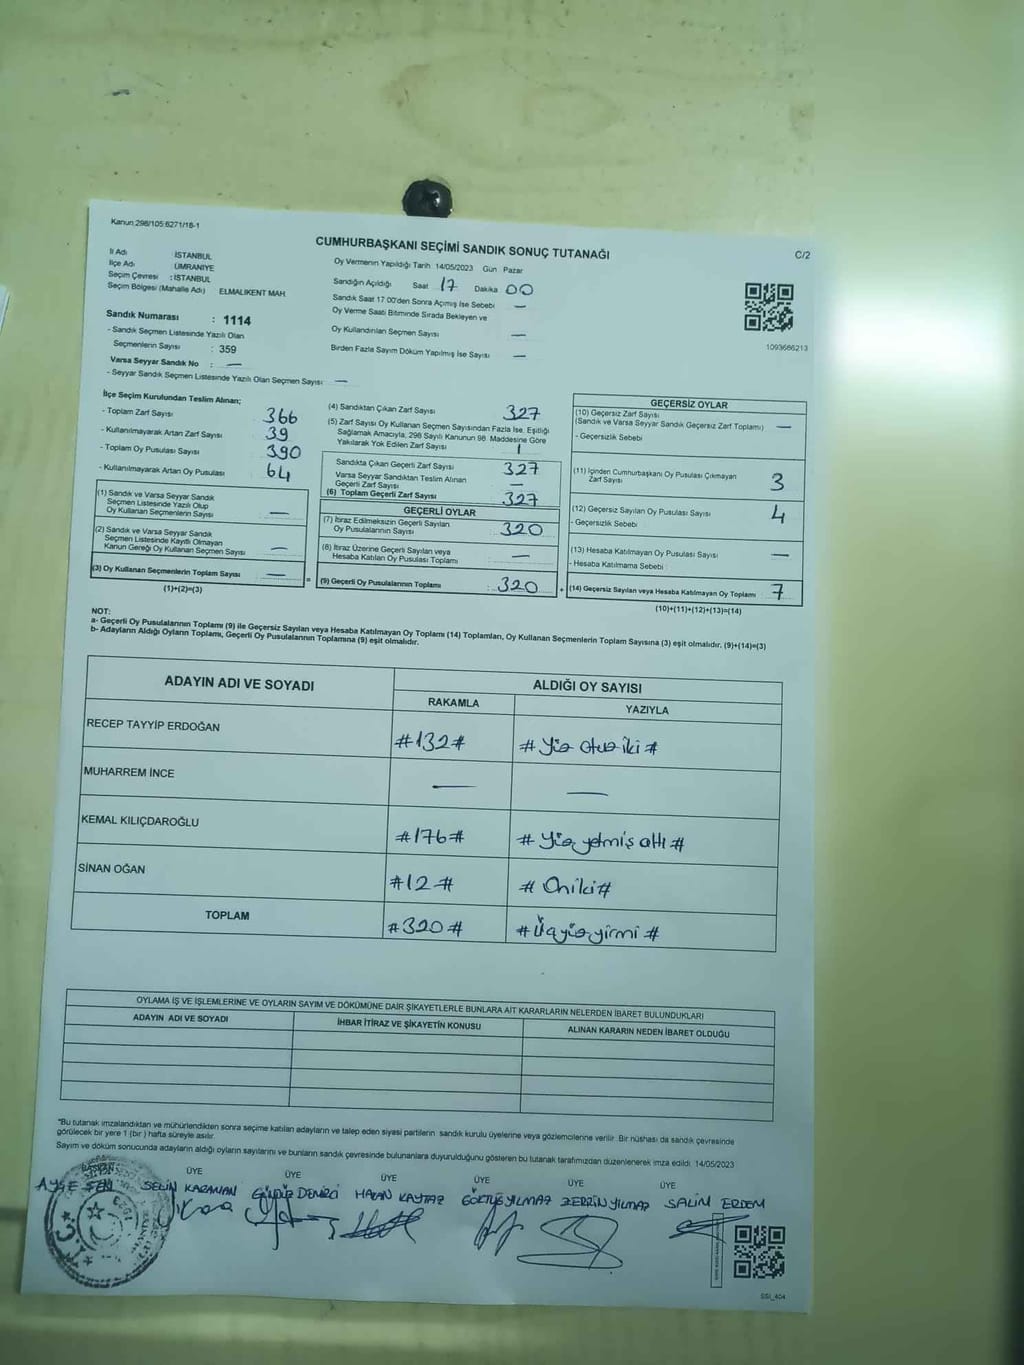 Kanun:298/105;6271/18-1
CUMHURBAŞKANI SEÇİMİ SANDIK SONUÇ TUTANAĞI
C/2
İl Adı : İSTANBUL
İlçe Adı : ÜMRANİYE
Seçim Çevresi : İSTANBUL
Seçim Bölgesi (Mahalle Adı) ELMALIKENT MAH.
Sandık Numarası : 1114
- Sandık Seçmen Listesinde Yazılı Olan
Seçmenlerin Sayısı : 359
Varsa Seyyar Sandık No : —
- Seyyar Sandık Seçmen Listesinde Yazılı Olan Seçmen Sayısı —
Oy Vermenin Yapıldığı Tarih 14/05/2023 Gün Pazar
Sandığın Açıldığı Saat 17 Dakika 00
Sandık Saat 17.00'den Sonra Açımış İse Sebebi —
Oy Verme Saati Bitiminde Sırada Bekleyen ve
Oy Kullandırılan Seçmen Sayısı —
Birden Fazla Sayım Döküm Yapılmış İse Sayısı —
1093686213
İlçe Seçim Kurulundan Teslim Alınan;
- Toplam Zarf Sayısı 366
- Kullanılmayarak Artan Zarf Sayısı 39
- Toplam Oy Pusulası Sayısı 390
- Kullanılmayarak Artan Oy Pusulası 64
(1) Sandık ve Varsa Seyyar Sandık
Seçmen Listesinde Yazılı Olup
Oy Kullanan Seçmenlerin Sayısı —
(2) Sandık ve Varsa Seyyar Sandık
Seçmen Listesinde Kayıtlı Olmayan
Kanun Gereği Oy Kullanan Seçmen Sayısı —
(3) Oy Kullanan Seçmenlerin Toplam Sayısı —
(1)+(2)=(3)
(4) Sandıktan Çıkan Zarf Sayısı 327
(5) Zarf Sayısı Oy Kullanan Seçmen Sayısından Fazla İse, Eşitliği
Sağlamak Amacıyla, 298 Sayılı Kanunun 98. Maddesine Göre
Yakılarak Yok Edilen Zarf Sayısı 1
Sandıkta Çıkan Geçerli Zarf Sayısı 327
Varsa Seyyar Sandıktan Teslim Alınan
Geçerli Zarf Sayısı —
(6) Toplam Geçerli Zarf Sayısı 327
GEÇERLİ OYLAR
(7) İtiraz Edilmeksizin Geçerli Sayılan
Oy Pusulalarının Sayısı 320
(8) İtiraz Üzerine Geçerli Sayılan veya
Hesaba Katılan Oy Pusulası Toplamı —
= (9) Geçerli Oy Pusulalarının Toplamı : 320
GEÇERSİZ OYLAR
(10) Geçersiz Zarf Sayısı
(Sandık ve Varsa Seyyar Sandık Geçersiz Zarf Toplamı) —
- Geçersizlik Sebebi
(11) İçinden Cumhurbaşkanı Oy Pusulası Çıkmayan
Zarf Sayısı 3
(12) Geçersiz Sayılan Oy Pusulası Sayısı 4
- Geçersizlik Sebebi
(13) Hesaba Katılmayan Oy Pusulası Sayısı —
- Hesaba Katılmama Sebebi :
+ (14) Geçersiz Sayılan veya Hesaba Katılmayan Oy Toplamı 7
(10)+(11)+(12)+(13)=(14)
NOT:
a- Geçerli Oy Pusulalarının Toplamı (9) ile Geçersiz Sayılan veya Hesaba Katılmayan Oy Toplamı (14) Toplamları, Oy Kullanan Seçmenlerin Toplam Sayısına (3) eşit olmalıdır. (9)+(14)=(3)
b- Adayların Aldığı Oyların Toplamı, Geçerli Oy Pusulalarının Toplamına (9) eşit olmalıdır.
ADAYIN ADI VE SOYADI ALDIĞI OY SAYISI
RAKAMLA YAZIYLA
RECEP TAYYİP ERDOĞAN #132# # Yüz otuz iki #
MUHARREM İNCE — —
KEMAL KILIÇDAROĞLU #176# # Yüz yetmiş altı #
SİNAN OĞAN #12# # Oniki #
TOPLAM #320# # Üçyüz yirmi #
OYLAMA İŞ VE İŞLEMLERİNE VE OYLARIN SAYIM VE DÖKÜMÜNE DAİR ŞİKAYETLERLE BUNLARA AİT KARARLARIN NELERDEN İBARET BULUNDUKLARI
ADAYIN ADI VE SOYADI İHBAR İTİRAZ VE ŞİKAYETİN KONUSU ALINAN KARARIN NEDEN İBARET OLDUĞU
*Bu tutanak imzalandıktan ve mühürlendikten sonra seçime katılan adayların ve talep eden siyasi partilerin sandık kurulu üyelerine veya gözlemcilerine verilir. Bir nüshası da sandık çevresinde
görülecek bir yere 1 (bir) hafta süreyle asılır.
Sayım ve döküm sonucunda adayların aldığı oyların sayılarını ve bunların sandık çevresinde bulunanlara duyurulduğunu gösteren bu tutanak tarafımızdan düzenlenerek imza edildi. 14/05/2023
BAŞKAN ÜYE ÜYE ÜYE ÜYE ÜYE ÜYE
AYŞE ŞEN SELİN KARAMAN GÜNDÜZ DEMİRCİ HAKAN KAYTAZ GÖKTUĞ YILMAZ ZERRİN YILMAZ SALİM ERDEM
SSI_404